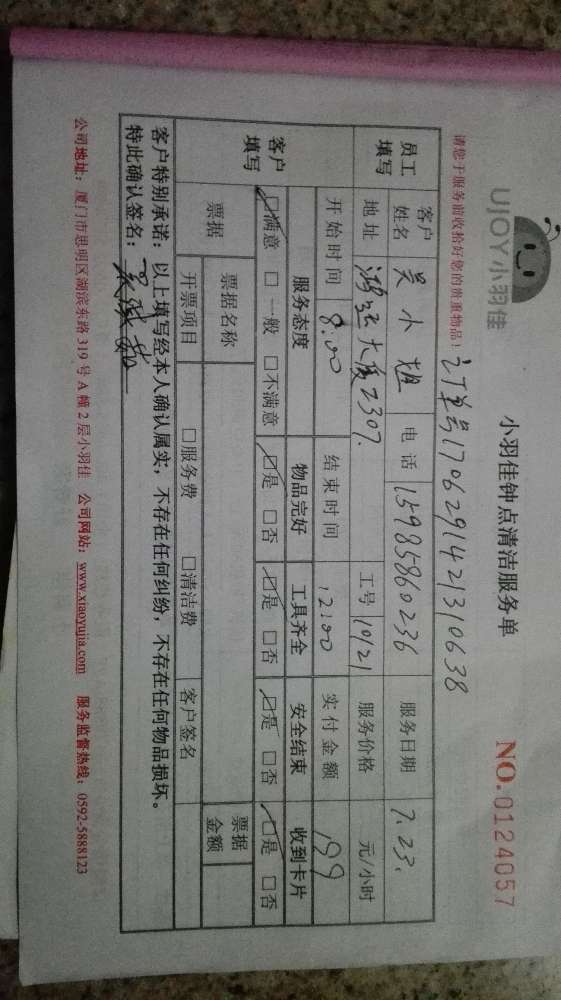 UJOY小羽佳
小羽佳钟点清洁服务单
NO.0124057
请您于服务前收拾好您的贵重物品！
订单号1706291421310638
员工填写 客户姓名 吴小姐 电话 15985860236 服务日期 7.23.
地址 大厦2307. 工号 10121 服务价格 元/小时
开始时间 8:00 结束时间 12:00 实付金额 199
客户填写 服务态度 物品完好 工具齐全 安全结束 收到卡片
☑满意 □一般 □不满意 ☑是 □否 ☑是 □否 ☑是 □否 ☑是 □否
票据 票据名称 票据金额
开票项目 □服务费 □清洁费 客户签名
客户特别承诺：以上填写经本人确认属实，不存在任何纠纷，不存在任何物品损坏。
特此确认签名：
公司地址：厦门市思明区湖滨东路319号A幢2层小羽佳 公司网站：www.xiaoyujia.com 服务监督热线：0592-5888123